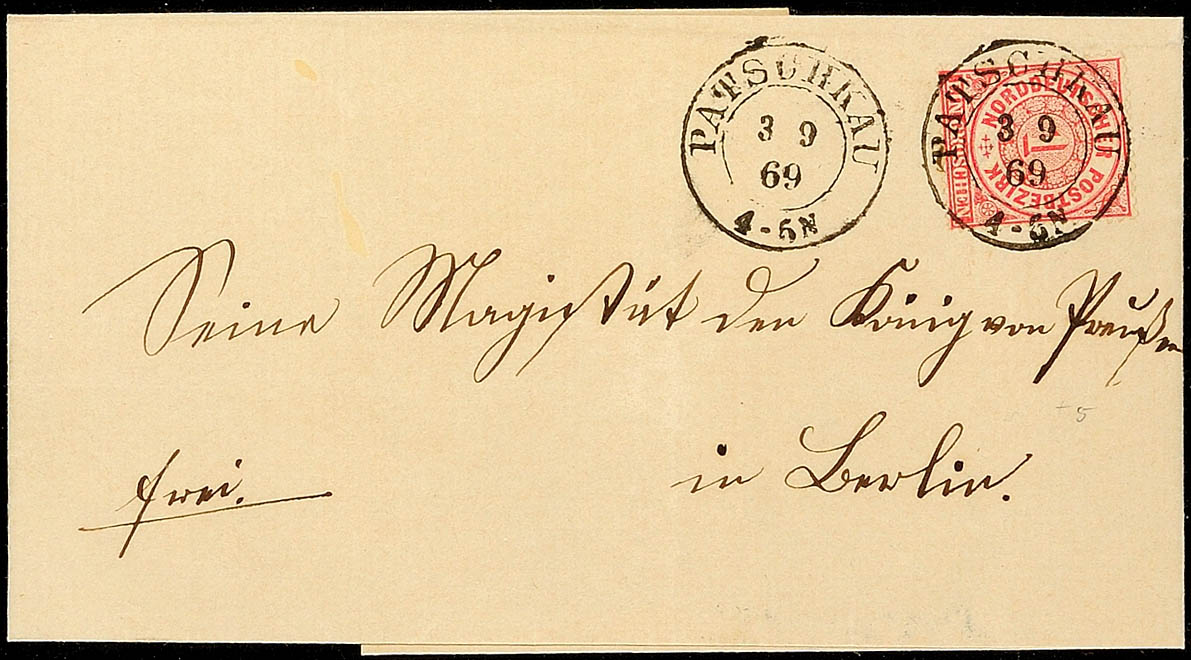 PATSCHKAU
3 9
69
4-5N
PATSCHKAU
3 9
69
4-5N
NORDDEUTSCHER POSTBEZIRK
1
GROSCHEN
Seine Magistät den König von Preußen
in Berlin.
frei.
+5